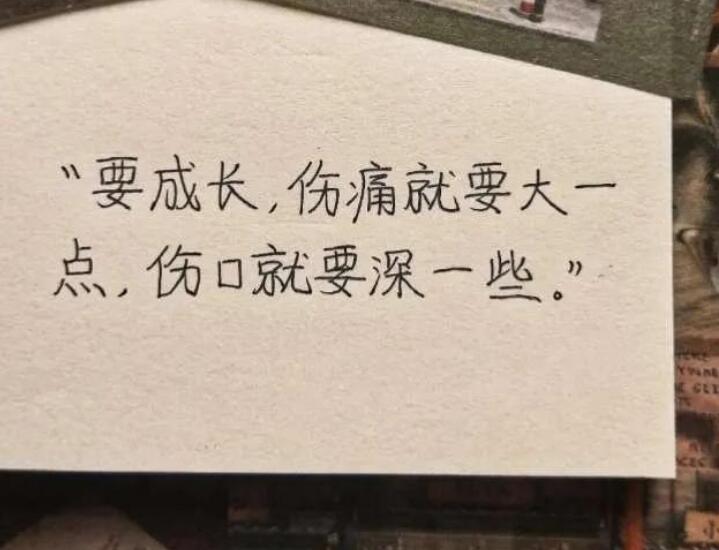 “要成长,伤痛就要大一
点,伤口就要深一些。”